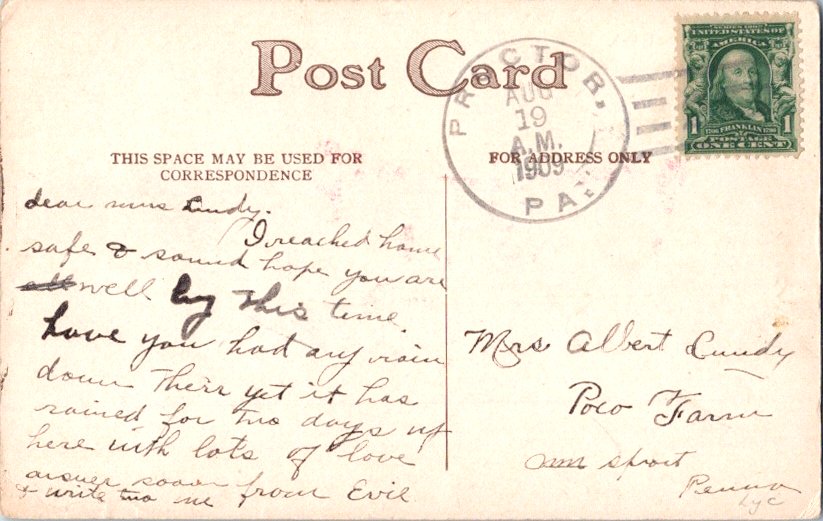 Post Card
PROCTOR,
AUG
19
A.M.
1909
PA.
SERIES 1902
UNITED STATES OF
AMERICA
1 1706 FRANKLIN 1790 1
POSTAGE
ONE CENT
THIS SPACE MAY BE USED FOR
CORRESPONDENCE
FOR ADDRESS ONLY
dear mrs Lundy.
I reached home
safe & sound hope you are
well by this time.
have you had any rain
down therr yet it has
rained for two days up
here with lots of love
answer soon from Evil
& write two me
Mrs Albert Lundy
Poco Farm
sprout
Penna
Lyc